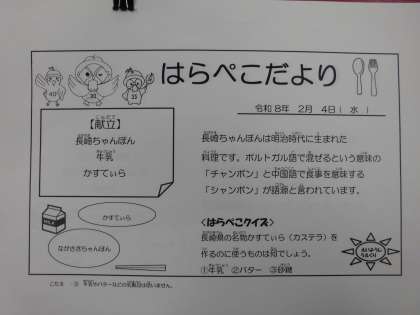 はらぺこだより
令和８年　２月　４日（　水　）
【献立】
長崎ちゃんぽん
牛乳
かすてぃら
長崎ちゃんぽんは明治時代に生まれた
料理です。ポルトガル語で混ぜるという意味の
「チャンポン」と中国語で食事を意味する
「シャンポン」が語源と言われています。
かすてぃら
ながさきちゃんぽん
<はらぺこクイズ>
長崎県の名物かすてぃら（カステラ）を
作るのに使うものは何でしょう。
①牛乳　②バター　③砂糖